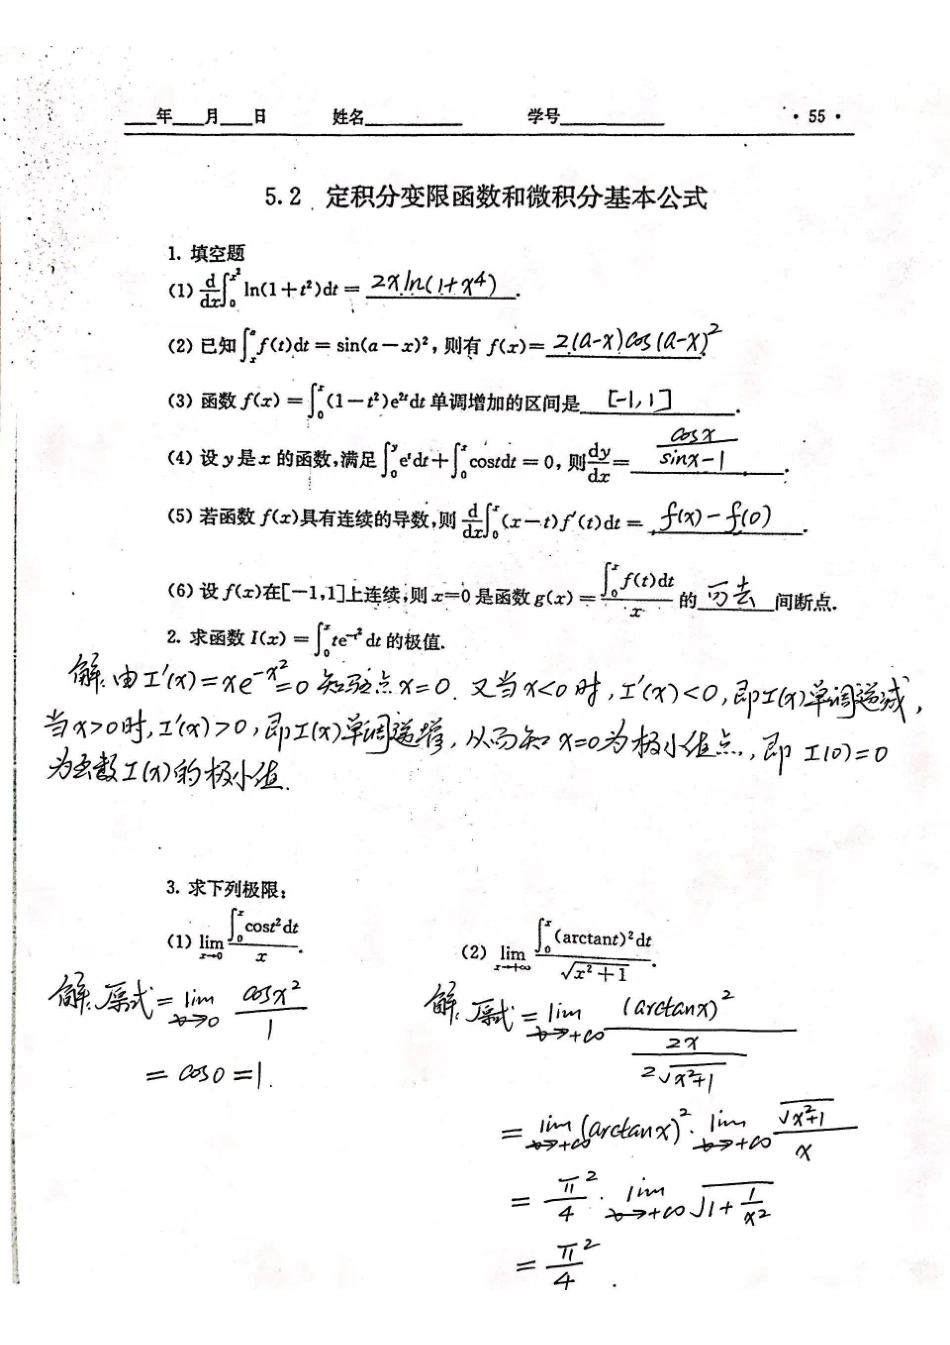 ___年___月___日 姓名__________ 学号__________ · 55 ·
5.2 定积分变限函数和微积分基本公式
1. 填空题
(1) d/dx ∫₀^{x²} ln(1+t²)dt = 2x ln(1+x⁴).
(2) 已知∫ₓ^a f(t)dt = sin(a-x)², 则有 f(x)= 2(a-x)cos(a-x)²
(3) 函数 f(x) = ∫₀^x (1-t²)e^{2t}dt 单调增加的区间是 [-1,1].
(4) 设 y 是 x 的函数, 满足∫₀^y e^t dt + ∫₀^x costdt = 0, 则 dy/dx = cosx/(sinx-1).
(5) 若函数 f(x)具有连续的导数, 则 d/dx ∫₀^x (x-t)f′(t)dt = f(x)-f(0).
(6) 设 f(x)在[-1,1]上连续, 则 x=0 是函数 g(x) = ∫₀^x f(t)dt / x 的 可去 间断点.
2. 求函数 I(x) = ∫₀^x te^{-t²} dt 的极值.
解: 由 I′(x)=xe^{-x²}=0 知驻点 x=0. 又当 x<0 时, I′(x)<0, 即I(x)单调递减,
当 x>0时, I′(x)>0, 即I(x)单调递增, 从而知 x=0为极小值点, 即 I(0)=0
为函数 I(x)的极小值.
3. 求下列极限:
(1) lim_{x→0} ∫₀^x cost²dt / x.
解: 原式 = lim_{x→0} cosx² / 1
= cos0 = 1.
(2) lim_{x→+∞} ∫₀^x (arctant)²dt / √(x²+1).
解: 原式 = lim_{x→+∞} (arctanx)² / (2x / 2√(x²+1))
= lim_{x→+∞} (arctanx)² · lim_{x→+∞} √(x²+1) / x
= π²/4 · lim_{x→+∞} √(1+1/x²)
= π²/4.